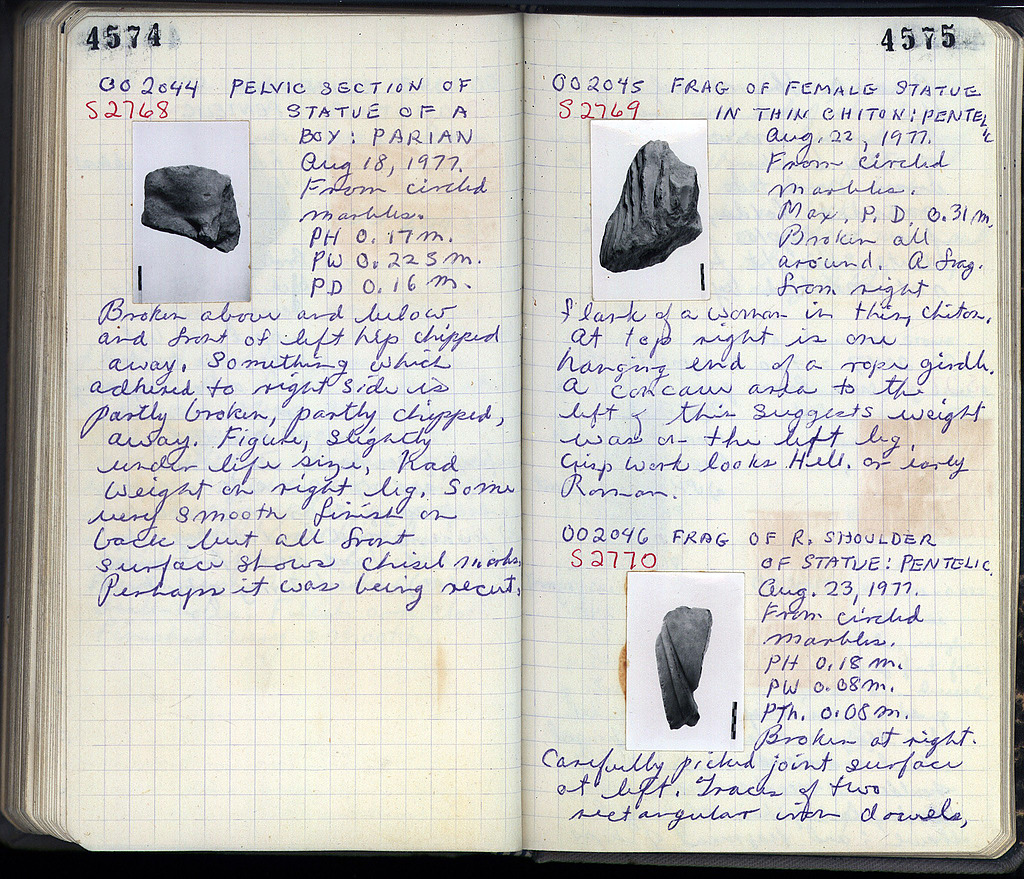 4574
OO 2044 PELVIC SECTION OF
S2768 STATUE OF A
BOY: PARIAN
Aug 18, 1977.
From circled
marbles.
PH 0.17 m.
PW 0.225 m.
PD 0.16 m.
Broken above and below
and front of left hip chipped
away. Something which
adhered to right side is
partly broken, partly chipped,
away. Figure, slightly
under life size, had
weight on right leg. Some
very smooth finish on
back but all front
surface shows chisel marks.
Perhaps it was being recut.
4575
OO 2045 FRAG OF FEMALE STATUE
S2769 IN THIN CHITON: PENTELIC
Aug. 22, 1977.
From circled
marbles.
Max. P. D. 0.31 m.
Broken all
around. A frag.
from right
flank of a woman in thin chiton.
At top right is one
hanging end of a rope girdle.
A concave area to the
left of this suggests weight
was on the left leg.
Crisp work looks Hell. or early
Roman.
OO 2046 FRAG OF R. SHOULDER
S2770 OF STATUE: PENTELIC.
Aug. 23, 1977.
From circled
marbles.
PH 0.18 m.
PW 0.08 m.
PTh. 0.08 m.
Broken at right.
Carefully picked joint surface
at left. Traces of two
rectangular iron dowels,